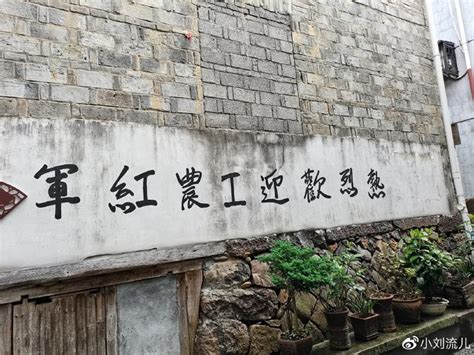 熱烈歡迎工農紅軍
小刘流儿